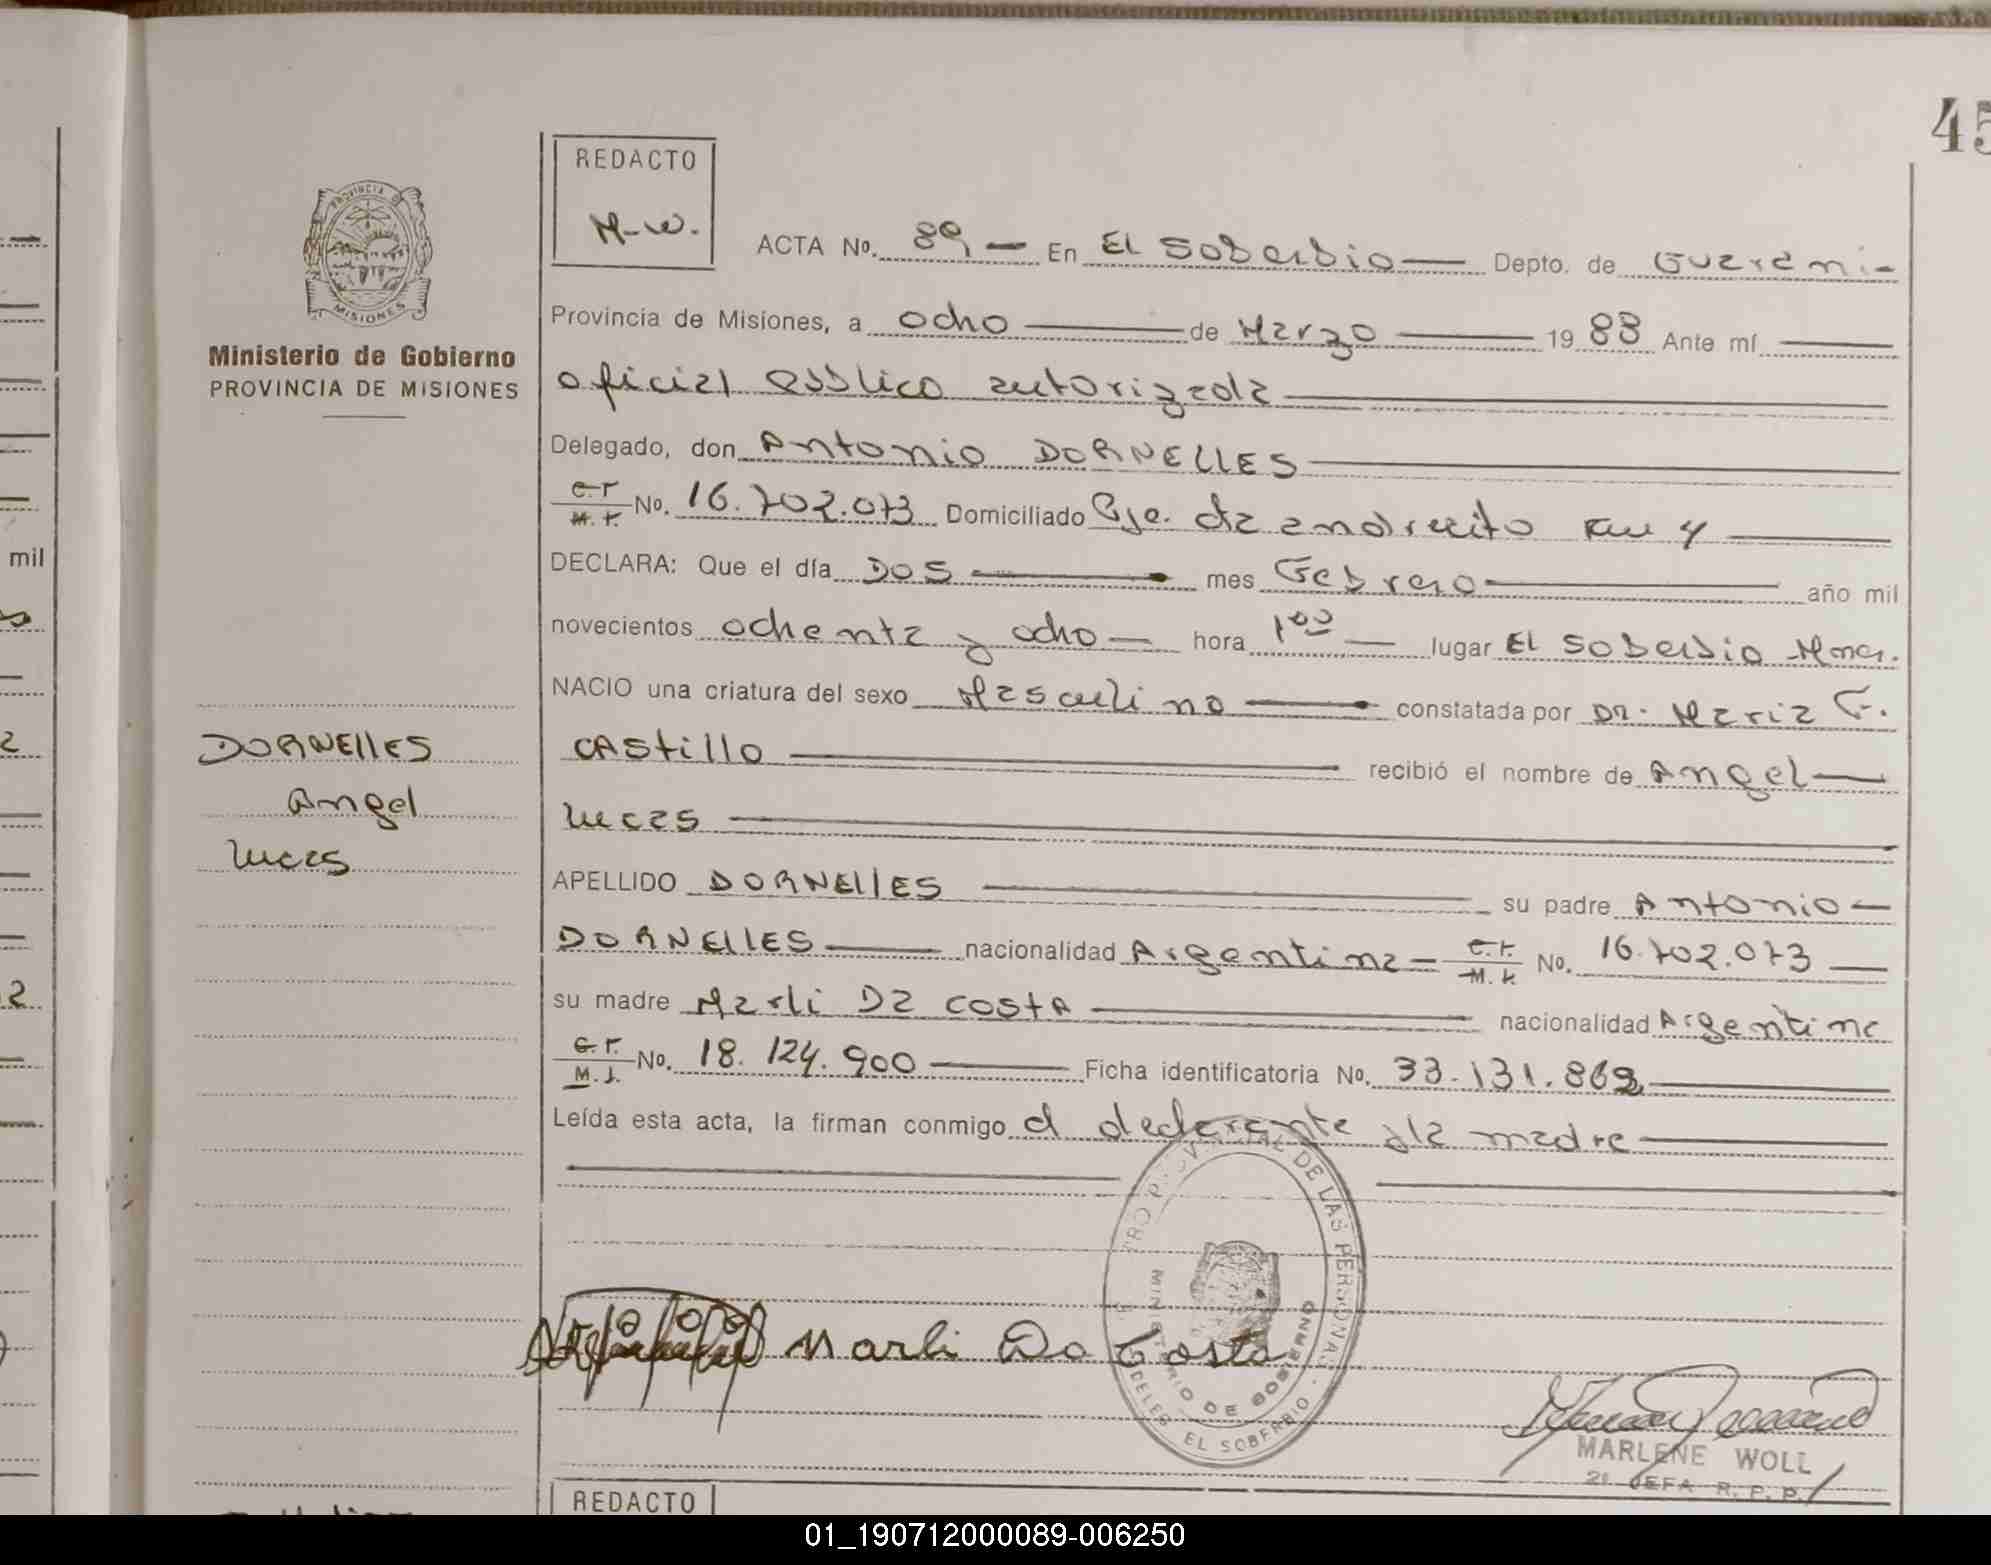 45
REDACTO
M-W.
ACTA No. 89 — En El Soberbio — Depto. de Guarani -
PROVINCIA DE
MISIONES
Ministerio de Gobierno
PROVINCIA DE MISIONES
Provincia de Misiones, a ocho — de Marzo — 1988 Ante mí —
oficial público autorizada —
Delegado, don Antonio DORNELLES —
No. 16.702.073 Domiciliado Cje. da andrecito Km 4 —
DECLARA: Que el día DOS — mes Febrero — año mil
mil
novecientos ochenta y ocho — hora 1 00 — lugar El Soberbio Mnes.
NACIO una criatura del sexo Masculino — constatada por Dr. Maria F.
DORNELLES
Angel
Lucas
CAStillo — recibió el nombre de Angel —
Lucas —
APELLIDO DORNELLES — su padre Antonio —
DORNELLES — nacionalidad Argentina - C.I. M.I. No. 16.702.073 —
su madre Marli Da COStA — nacionalidad Argentina
C.I. M.I. No. 18.124.900 — Ficha identificatoria No. 33.131.862 —
Leída esta acta, la firman conmigo el declarante y la madre —
PROVINCIAL DE LAS PERSONAS
MINISTERIO DE GOBIERNO
EL SOBERBIO
Marli Da Costa
MARLENE WOLL
2ª JEFA R. P. P.
REDACTO
01_190712000089-006250